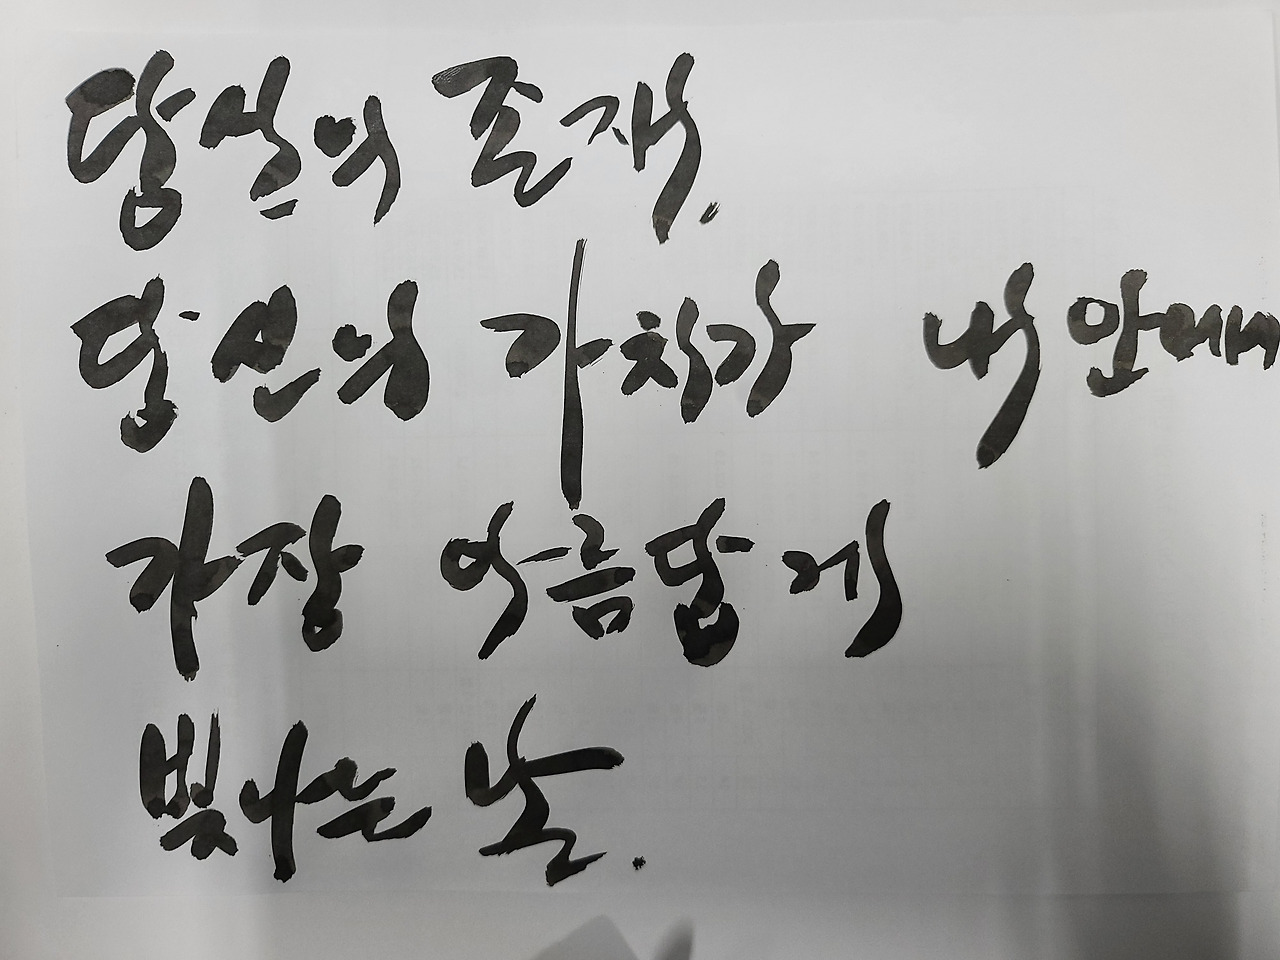 당신의 존재.
당신의 가치가 내 안에서
가장 아름답게
빛나는 날.